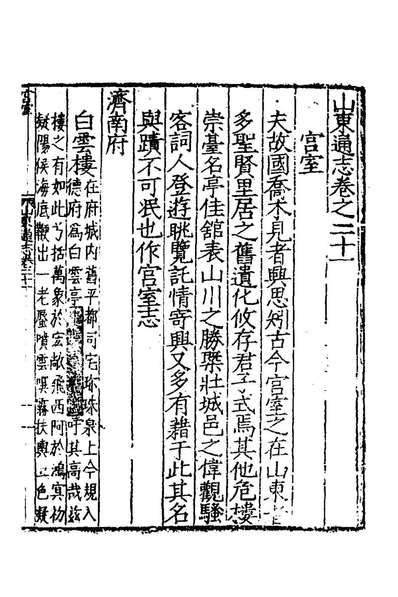 山東通志卷之二十一
宮室
夫故國喬木見者興思矧古今宮室之在山東者
多聖賢里居之舊遺化攸存君子式焉其他危樓
崇臺名亭佳館表山川之勝槩壯城邑之偉觀騷
客詞人登遊眺覽託情寄興又多有藉于此其名
與蹟不可泯也作宮室志
濟南府
白雲樓
在府城内舊平都司宅珍珠泉上今規入
德府為白雲亭 吁其高哉茲
樓之有如此也括萬象於宏敞飛西阿於鴻冥初
疑陽侯海底 出一老蜃噴雲嘆霧扶輿 色凝